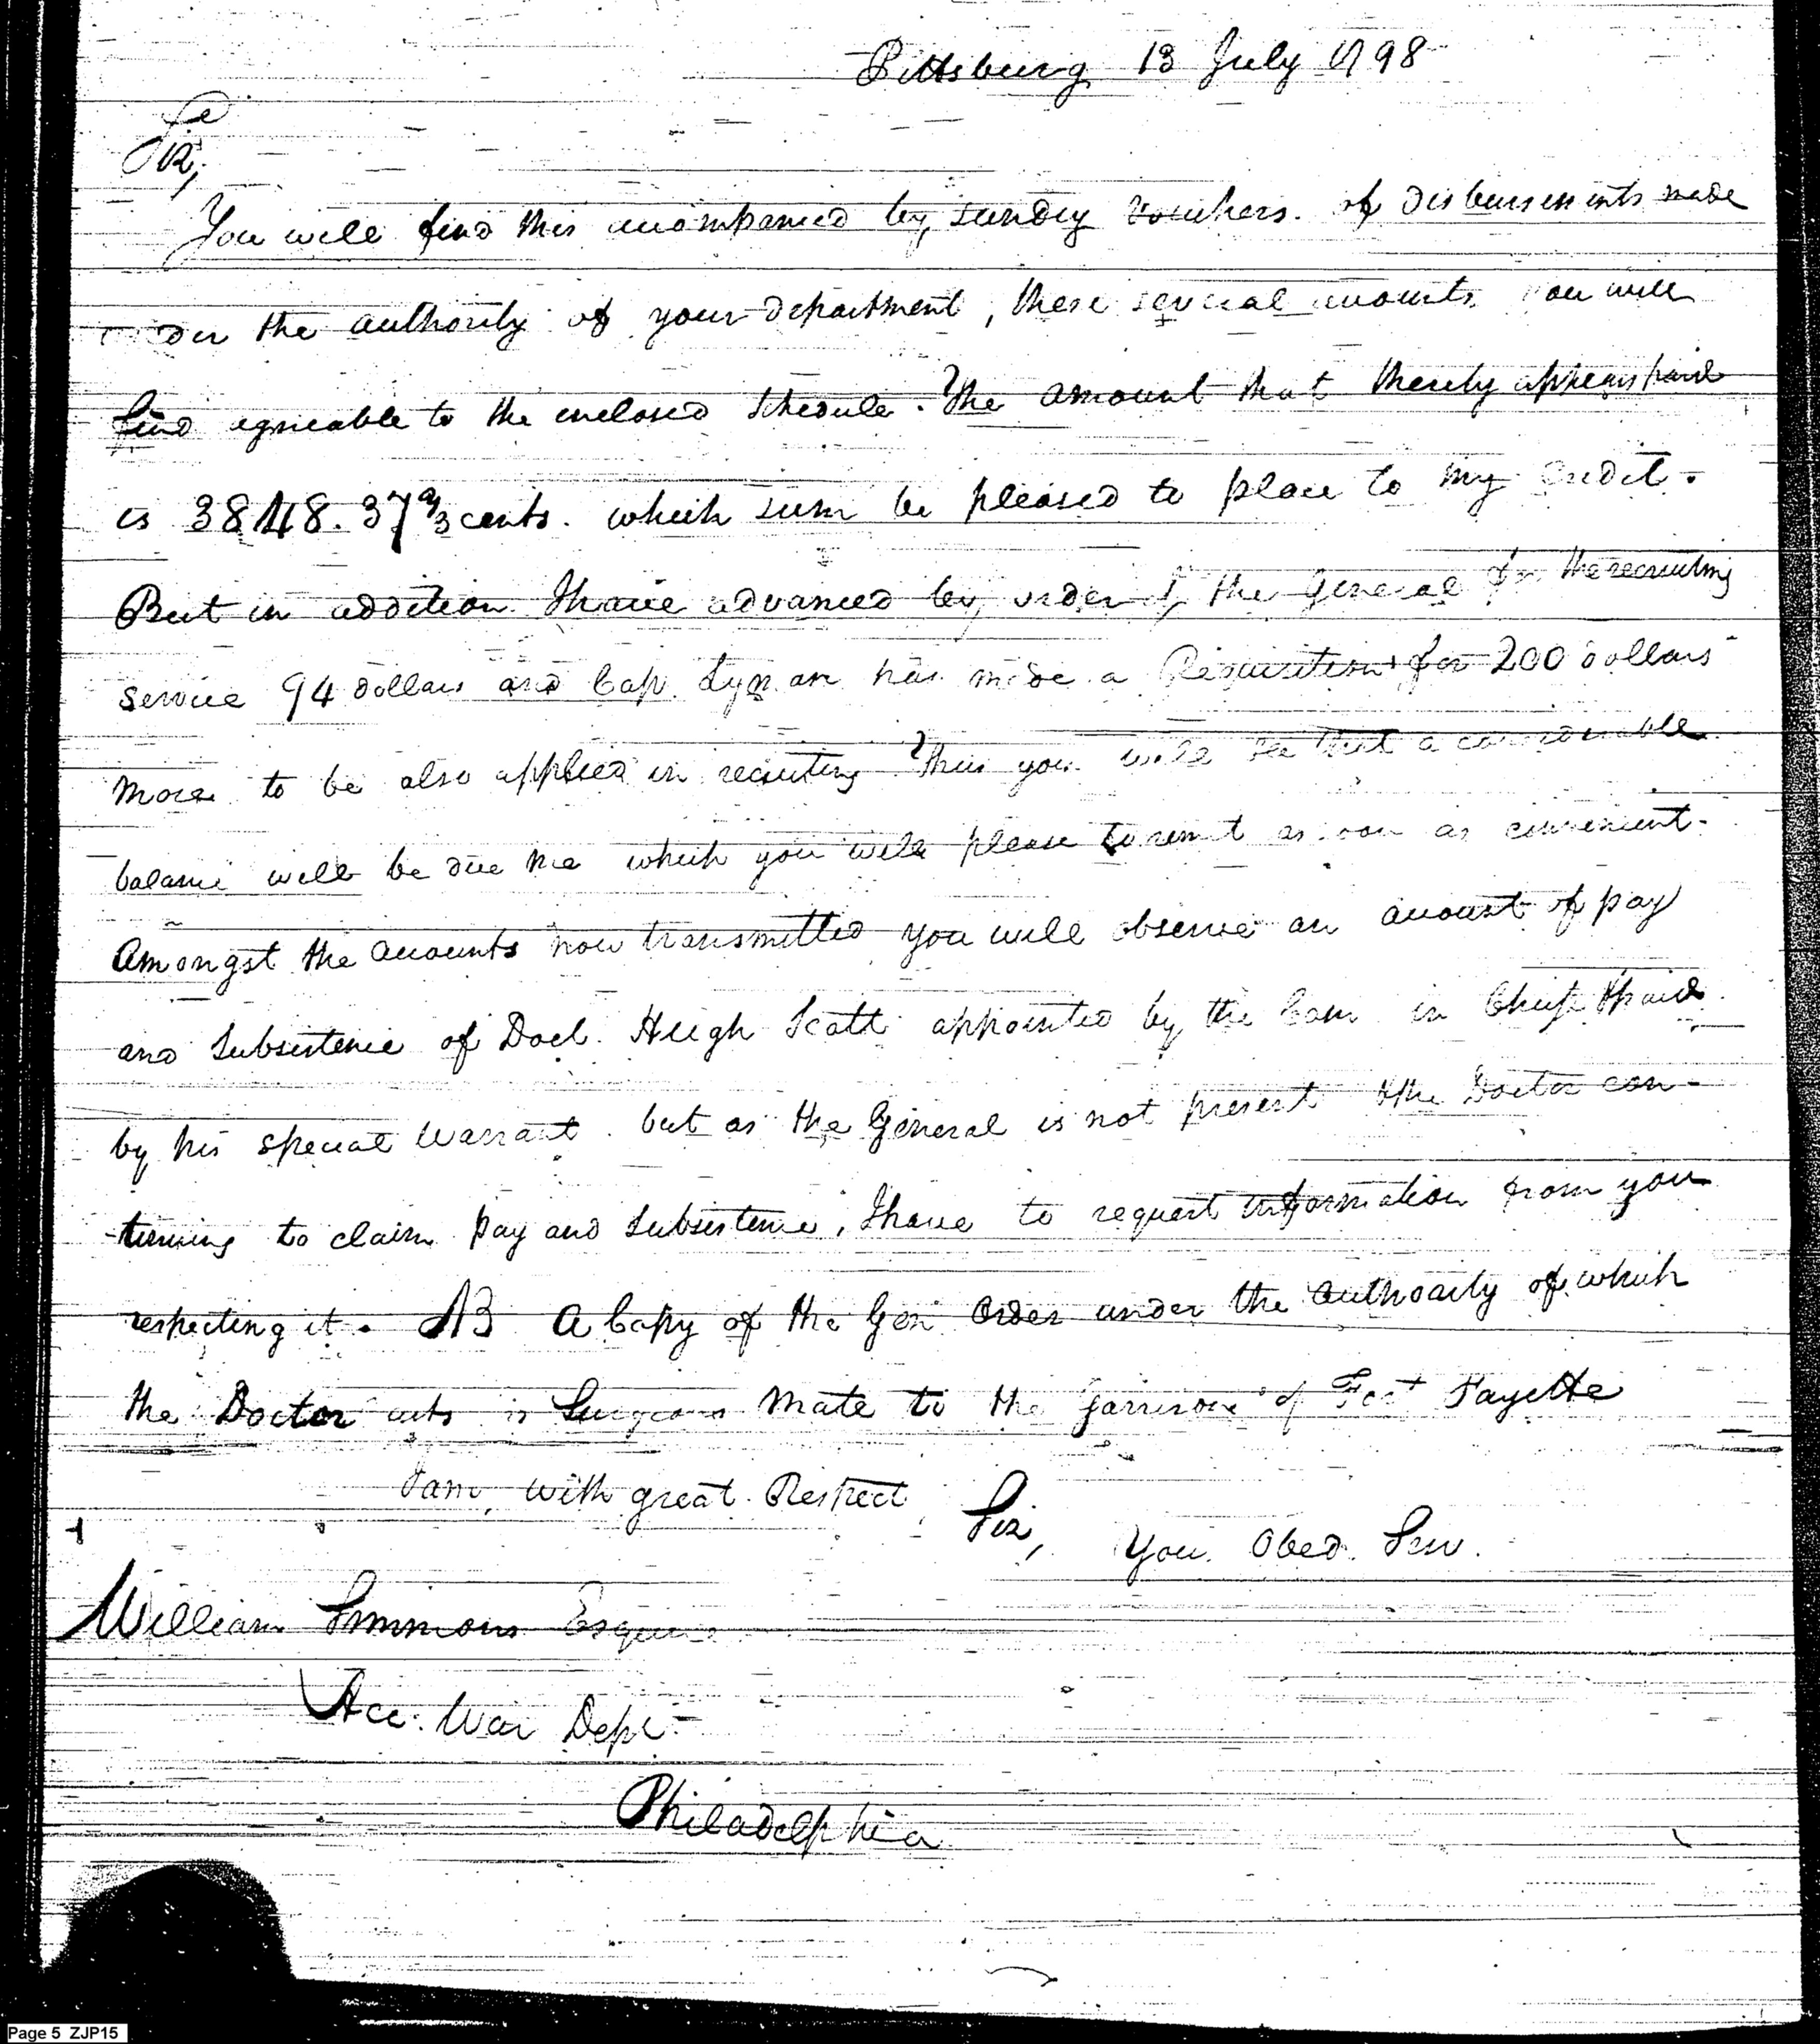 Pittsburg 13 July 1798
Sir,
You will find this accompanied by sundry vouchers of disbursements made
under the authority of your department, these several accounts you will
find agreeable to the enclosed schedule. The amount that thereby appears paid
is 3848.37 cents. which sum be pleased to place to my Credit.
But in addition I have advanced by order of the General for the recruiting
service 94 dollars and Cap. Lyman has made a Requisition for 200 dollars
more to be also applied in recruting Thus you will see that a considerable
balance will be due me which you will please to remit as soon as convenient.
Amongst the accounts now transmitted you will observe an account of pay
and Subsistence of Doct. Hugh Scott appointed by the Com in Chief & paid
by his special Warrant. but as the General is not present & the Doctor con-
-tinuing to claim pay and Subsistence, I have to request information from you
respecting it. NB A Copy of the Gen Order under the authority of which
the Doctor acts is Surgeons Mate to the garrison of Fort Fayette
I am, with great Respect
Sir,
You. Obed. Serv.
William Simmons Esquire
Acc. War Dept.
Philadelphia
Page 5 ZJP15